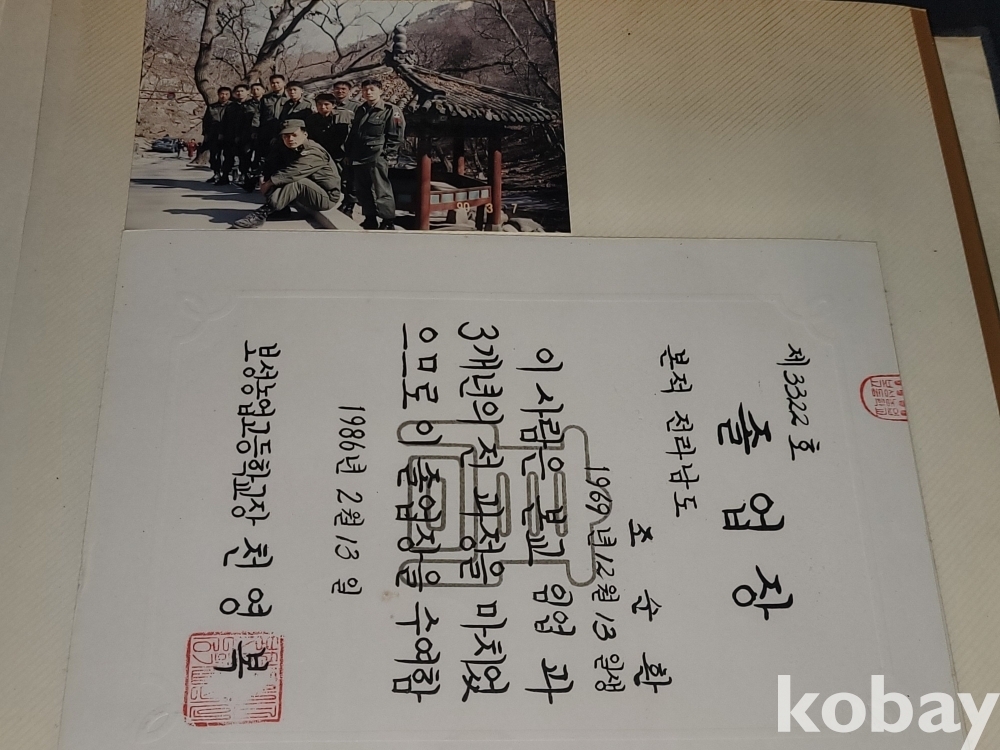 90 3 7
제3322호
졸업장
본적 전라남도
조순환
1969년12월13일생
이 사람은 본교 임업 과
3개년의 전 과정을 마치었
으므로 이 졸업장을 수여함
1986년 2월 13일
보성농업고등학교장 천영복
kobay